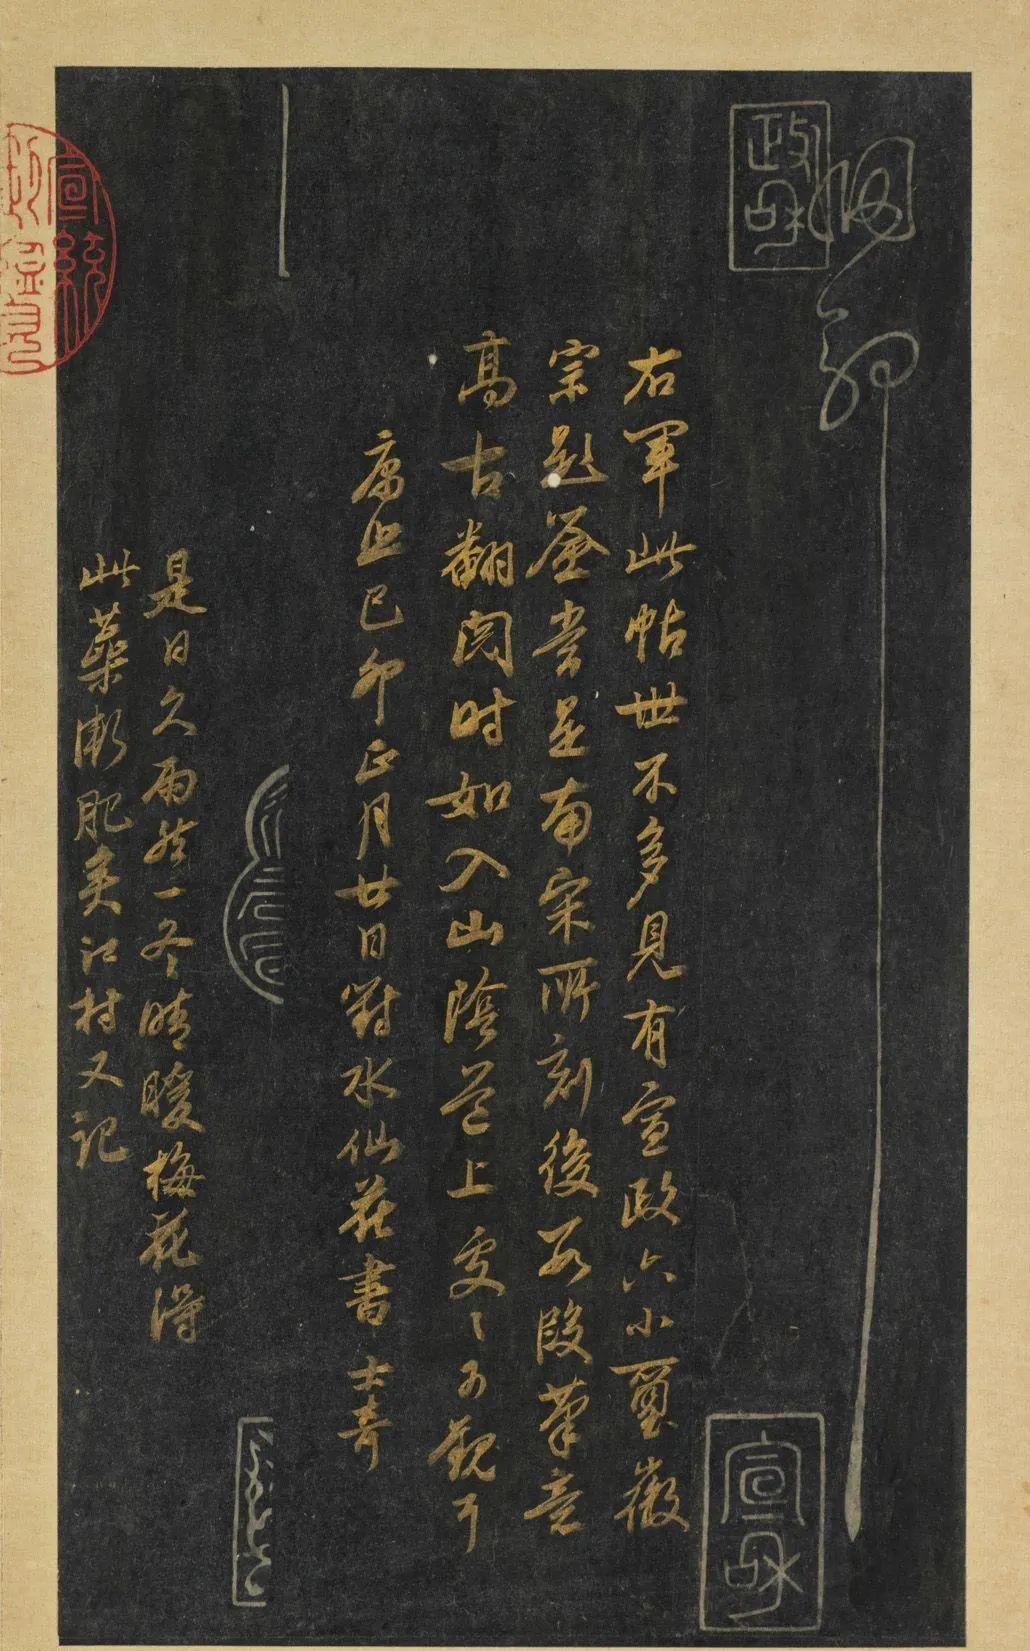 政和
右軍此帖世不多見有宣政六小璽徽
宗題籤當是南宋所刻後五段筆意
高古翻閱時如入山陰道上處〻可觀耳
康熙己卯正月廿日對水仙花書 士奇
是日久雨然一冬晴暖梅花得
此蘂漸肥矣江村又記
宣和
宣統御覽